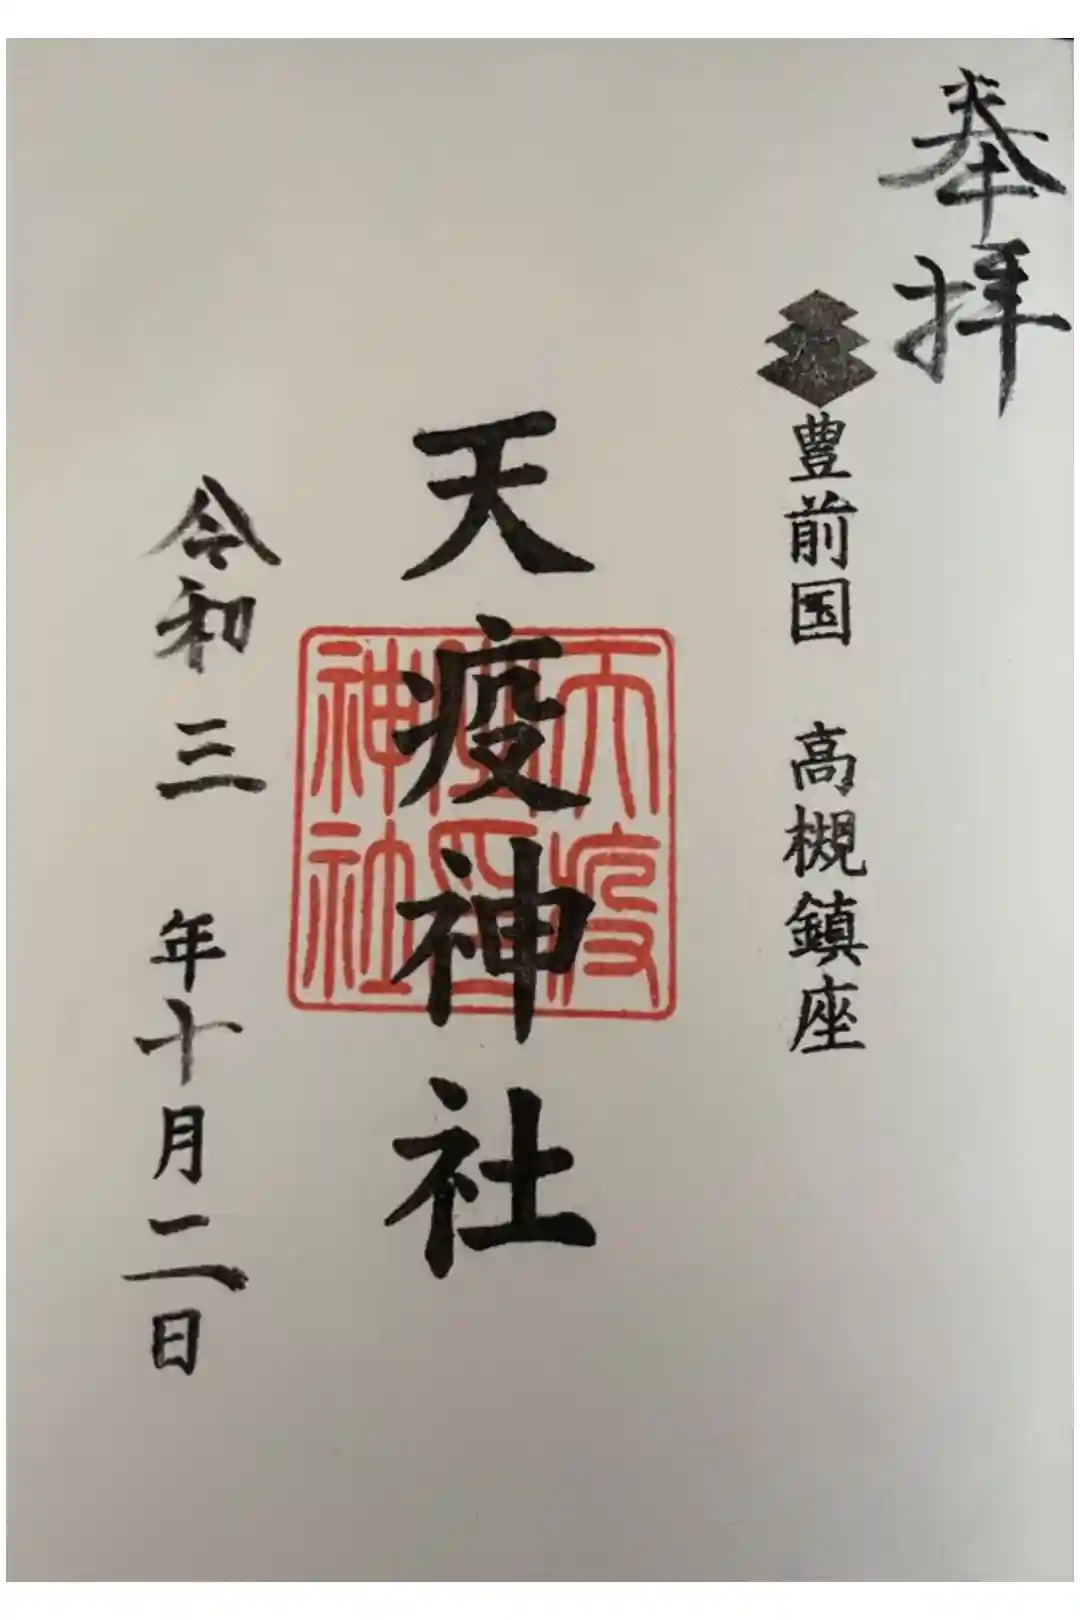 奉拝
豊前国 高槻鎮座
天疫神社
天疫
神社
令和三年十月二日